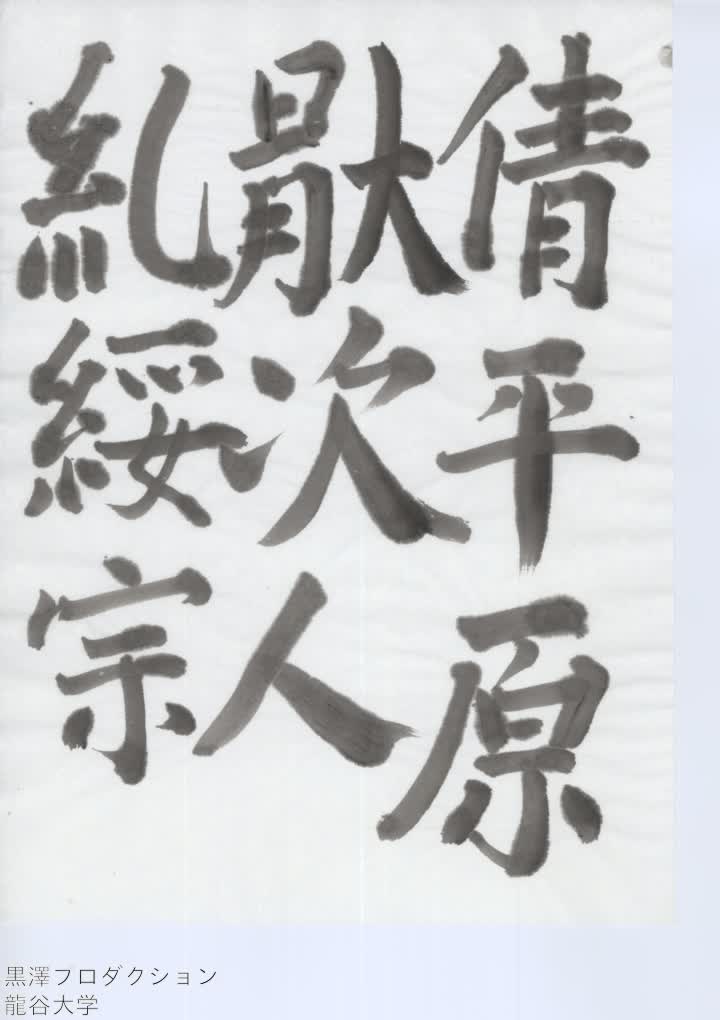 倩平原
猒次人
糺綏宗
黒澤フロダクション
龍谷大学